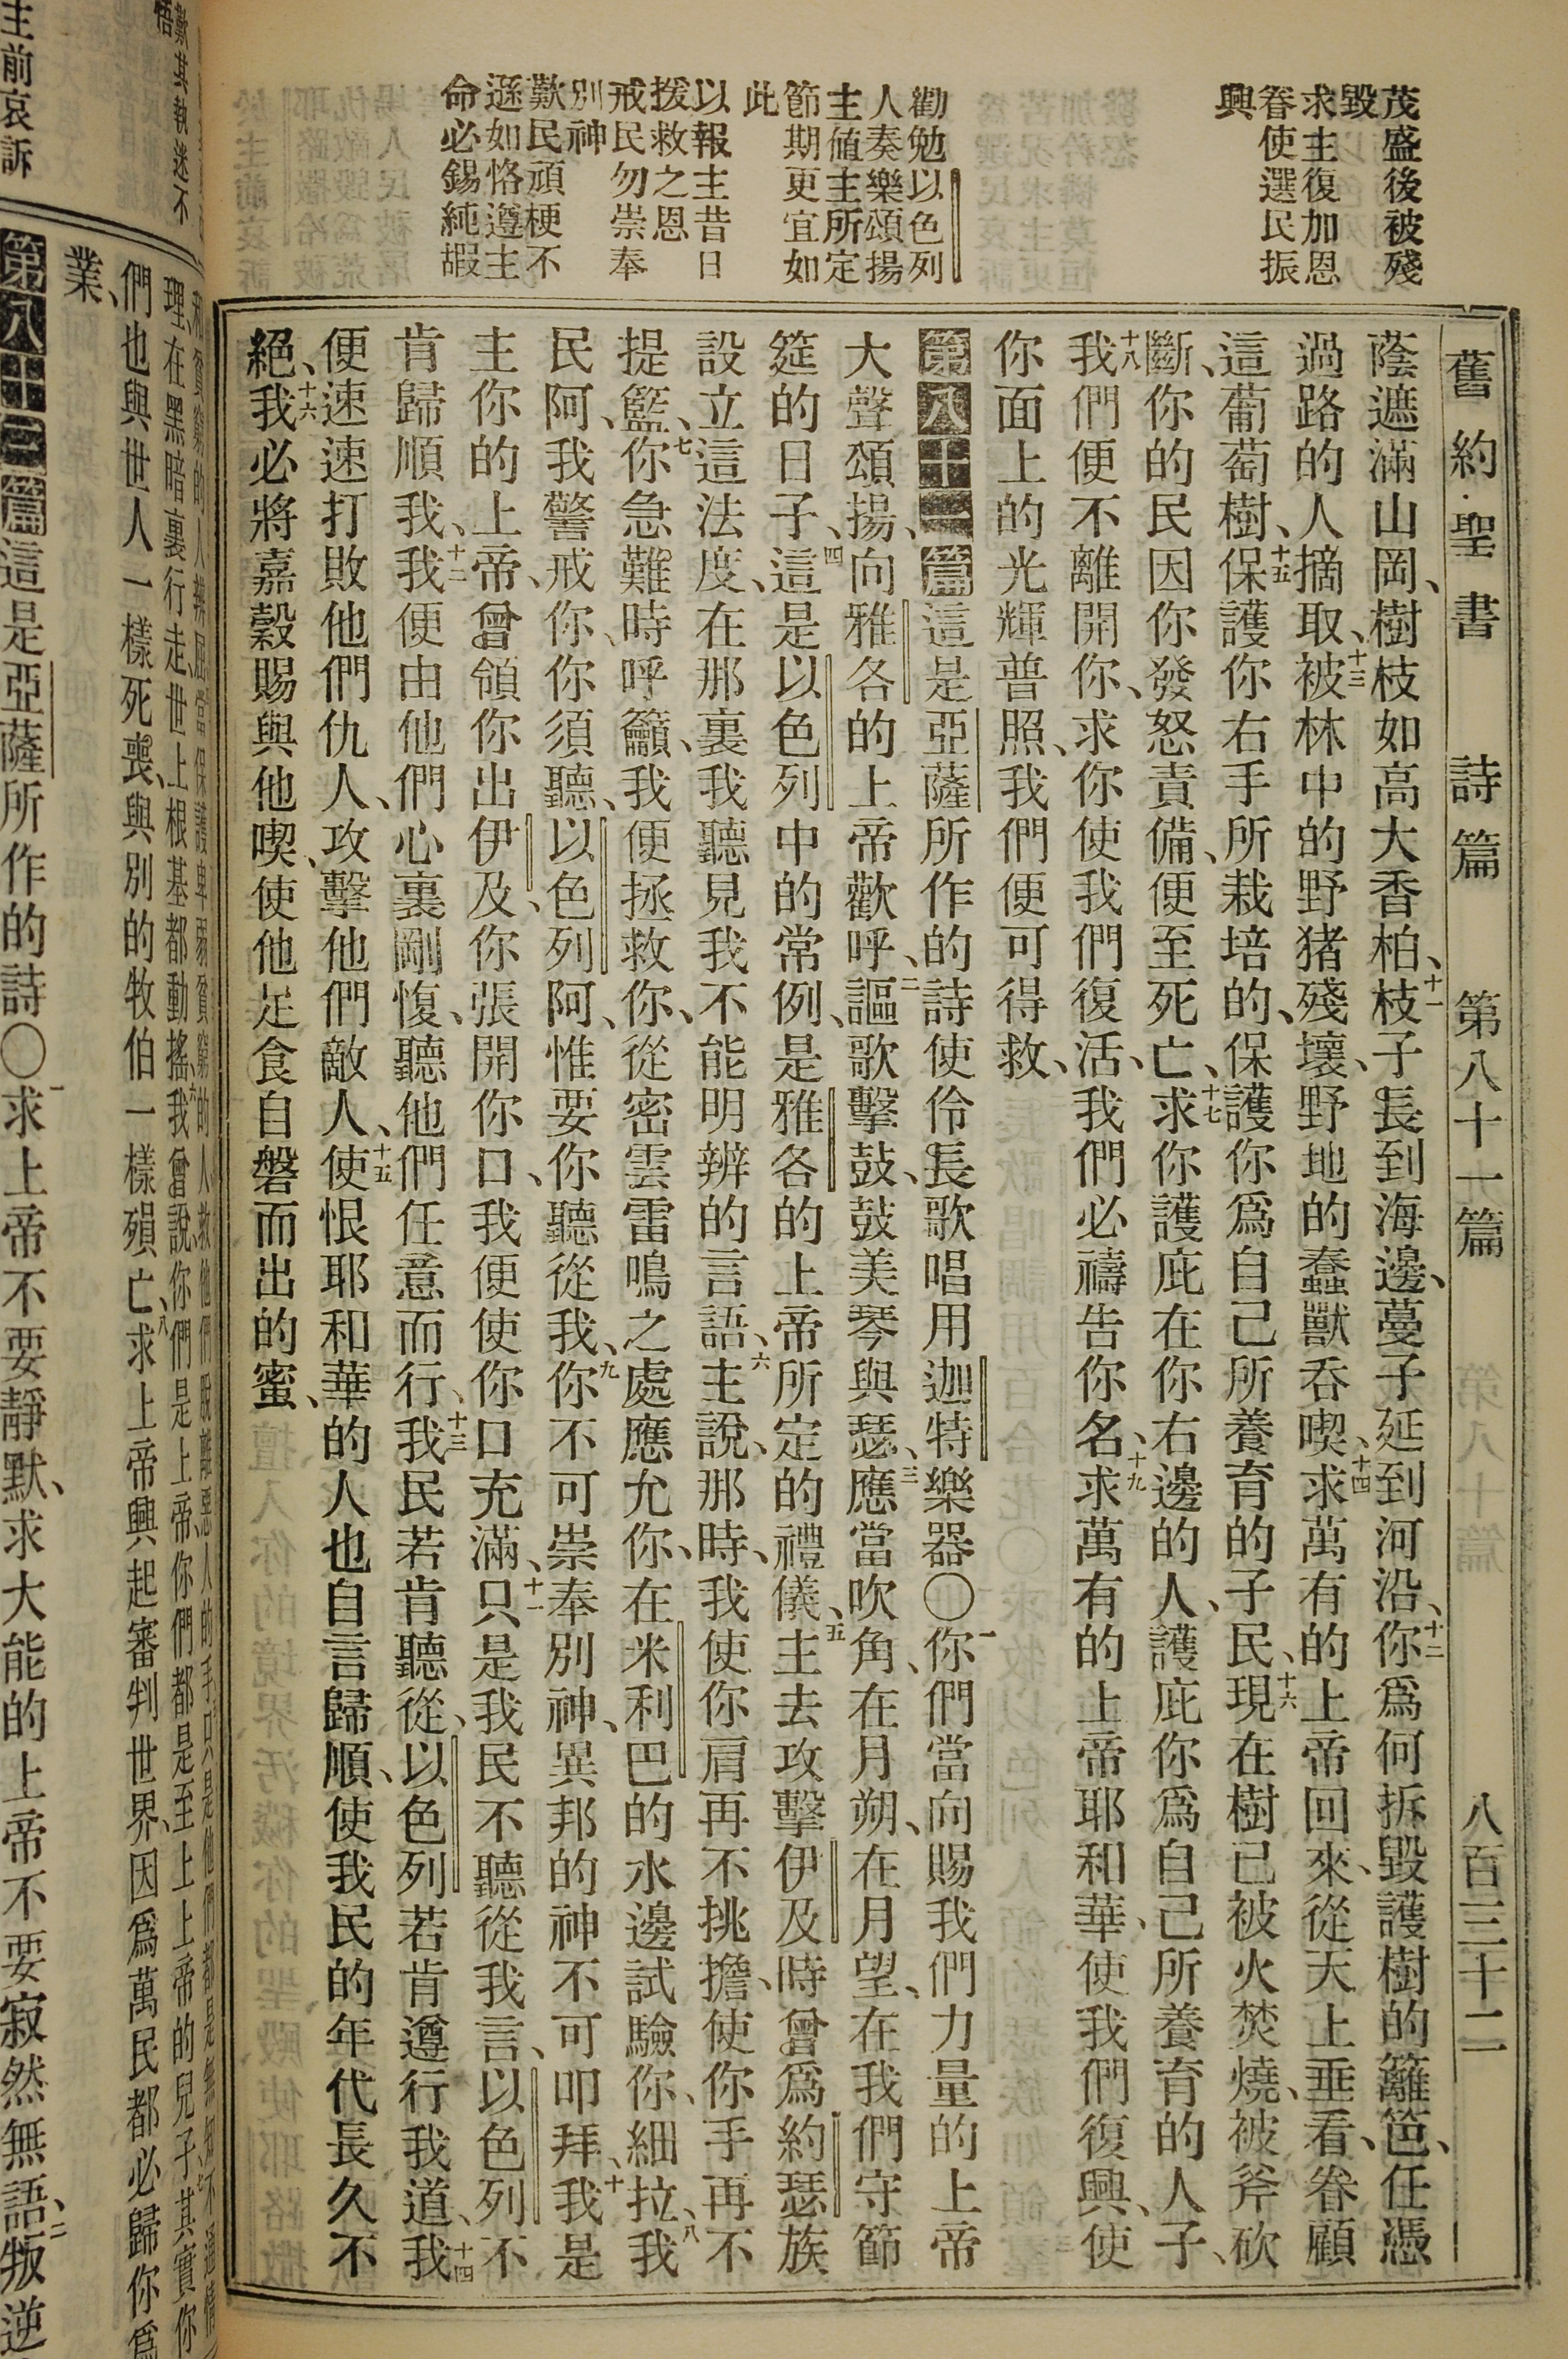 舊約聖書 詩篇 第八十一篇 八百三十二
茂盛後被殘
毀
求主復加恩
眷使選民振
興
勸勉以色列
人奏樂頌揚
主値主所定
節期更宜如
此
以報主昔日
援救之恩
戒民勿崇奉
別神
歎民頑梗不
遜如恪遵主
命必錫純嘏
蔭遮滿山岡、樹枝如高大香柏、十一枝子長到海邊、蔓子延到河沿、十二你爲何拆毀護樹的籬笆、任憑
過路的人摘取、十三被林中的野猪殘壞、野地的蠢獸吞喫、十四求萬有的上帝回來、從天上垂看、眷顧
這葡萄樹、十五保護你右手所栽培的、保護你爲自己所養育的子民、十六現在樹已被火焚燒、被斧砍
斷、你的民因你發怒責備、便至死亡、十七求你護庇在你右邊的人、護庇你爲自己所養育的人子、
十八我們便不離開你、求你使我們復活、我們必禱告你名、十九求萬有的上帝耶和華、使我們復興、使
你面上的光輝普照、我們便可得救、
第八十一篇 這是亞薩所作的詩使伶長歌唱用迦特樂器〇一你們當向賜我們力量的上帝
大聲頌揚、向雅各的上帝歡呼、二謳歌擊鼓、鼓美琴與瑟、三應當吹角、在月朔、在月望、在我們守節
筵的日子、四這是以色列中的常例、是雅各的上帝所定的禮儀、五主去攻擊伊及時曾爲約瑟族
設立這法度、在那裏我聽見我不能明辨的言語、六主說、那時、我使你肩再不挑擔、使你手再不
提籃、七你急難時呼籲、我便拯救你、從密雲雷鳴之處應允你、在米利巴的水邊試驗你、細拉、八我
民阿、我警戒你、你須聽、以色列阿、惟要你聽從我、九你不可崇奉別神、異邦的神不可叩拜、十我是
主你的上帝、曾領你出伊及、你張開你口、我便使你口充滿、十一只是我民不聽從我言、以色列不
肯歸順我、十二我便由他們心裏剛愎、聽他們任意而行、十三我民若肯聽從、以色列若肯遵行我道、十四我
便速速打敗他們仇人、攻擊他們敵人、十五使恨耶和華的人也自言歸順、使我民的年代長久不
絕、十六我必將嘉穀賜與他喫、使他足食自磐而出的蜜、
歎其執迷不
悟
主前哀訴
理、在黑暗裏行走、世上根基都動搖、六我曾說、你們是上帝、你們都是至上上帝的兒子、七其實你
們也與世人一樣死喪、與別的牧伯一樣殞亡、八求上帝興起審判世界、因爲萬民都必歸你爲
業、
第八十三篇 這是亞薩所作的詩〇一求上帝不要靜默、求大能的上帝不要寂然無語、二叛逆